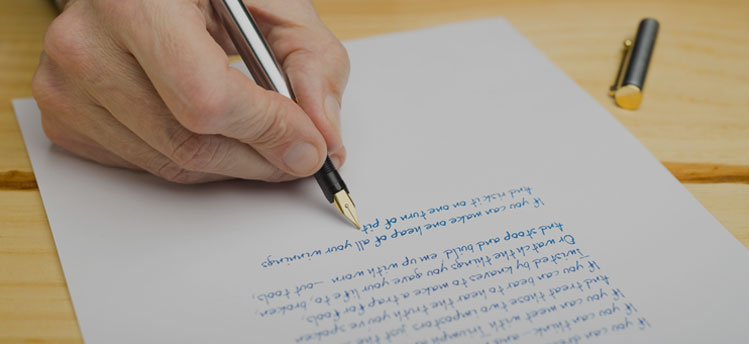 If you can
If you can think— and
If you can meet with Triumph
And treat those two impostors just the
If you can bear to hear the truth you've spoken
Twisted by knaves to make a trap for fools,
Or watch the things you gave your life to, broken,
And stoop and build 'em up with worn -out tools,
If you can make one heap of all your winnings
And risk it on one turn of pit